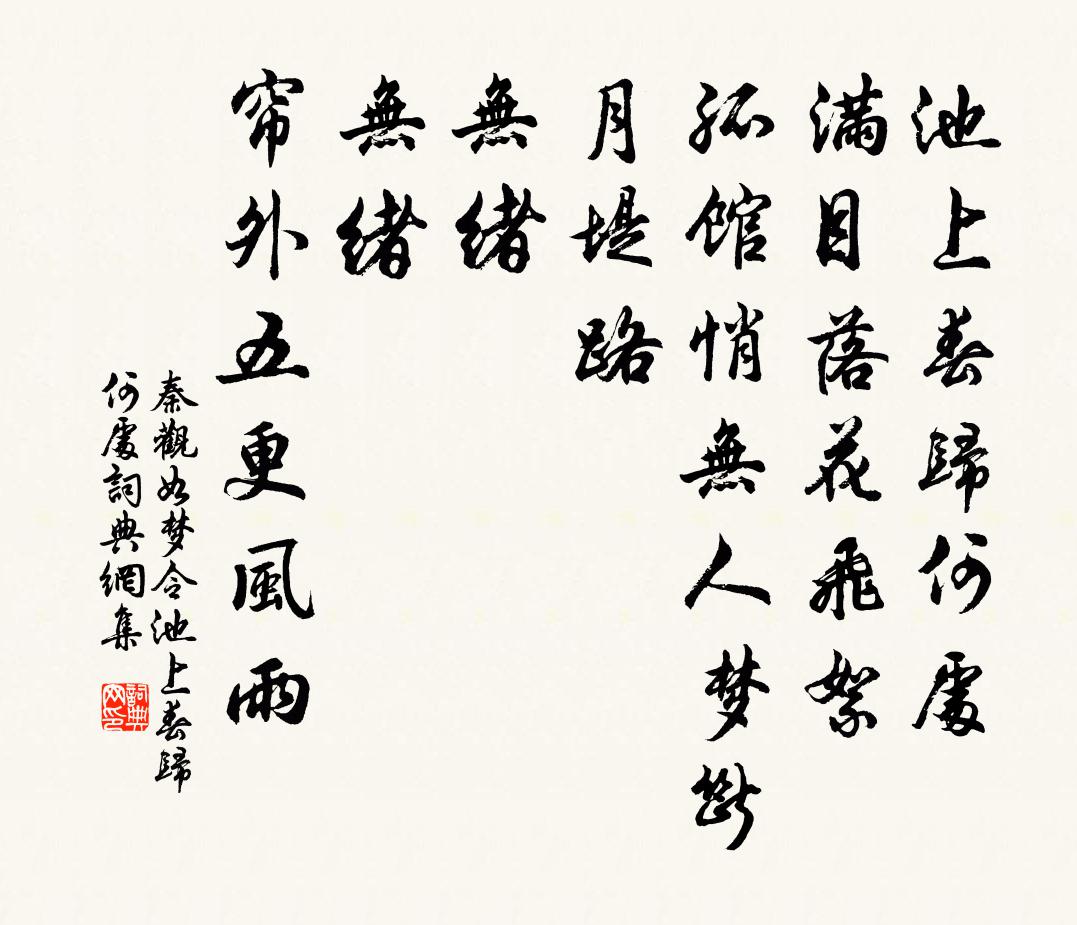 池上春歸何處
滿目落花飛絮
孤館悄無人夢斷
月堤路
無緒
無緒
帘外五更風雨
秦觀如梦令池上春歸
何處詞典網集
詞典
网印